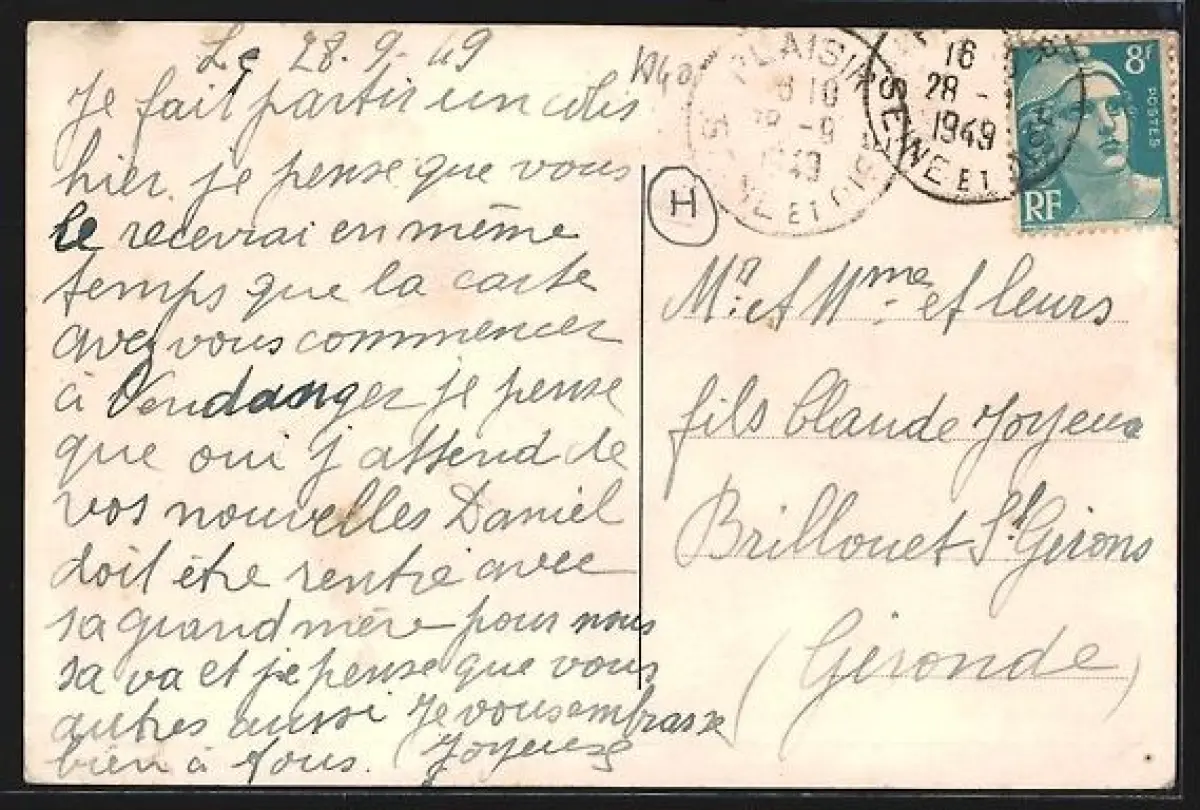 Le 28.9.49
Je fait partir un colis
hier je pense que vous
le recevrai en même
temps que la carte
avez vous commencer
à Vendanger je pense
que oui j'attend de
vos nouvelles Daniel
doit être rentré avec
sa grand mère pour nous
sa va et je pense que vous
autres aussi Je vous embrasse
bien à Tous. Joyeuse
PLAISIR
1949
SEINE ET OISE
16
28 -
1949
SEINE ET
8F
POSTES
RF
H
Mr. et Mme et leurs
fils Claude Joyeux
Brillouet St. Girons
(Gironde)